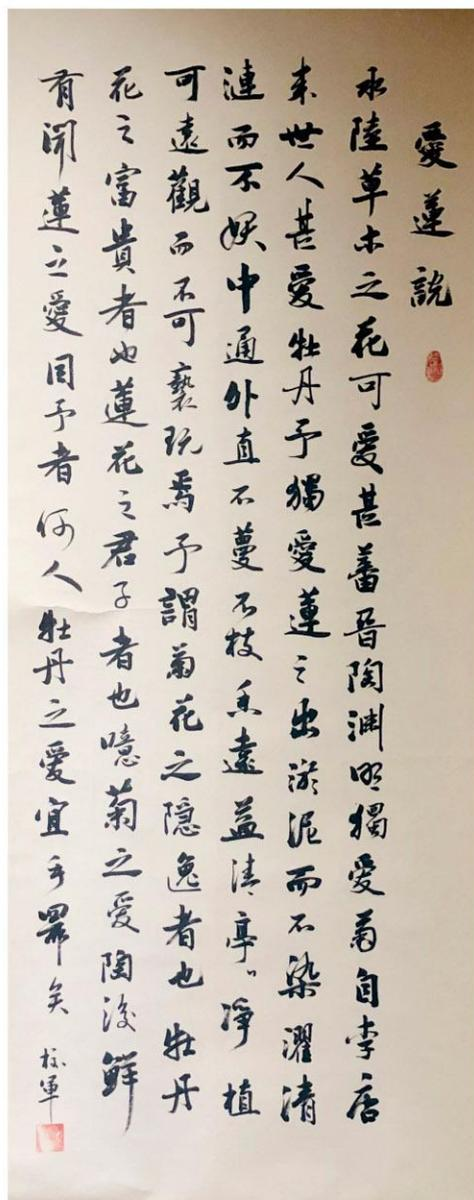 愛蓮說
水陸草木之花可愛甚蕃晉陶淵明獨愛菊自李唐
来世人甚愛牡丹予獨愛蓮之出淤泥而不染濯清
漣而不妖中通外直不蔓不枝香遠益清亭〻淨植
可遠觀而不可褻玩焉予謂菊花之隱逸者也牡丹
花之富貴者也蓮花之君子者也噫菊之愛陶後鮮
有聞蓮之愛同予者何人牡丹之愛宜乎眾矣